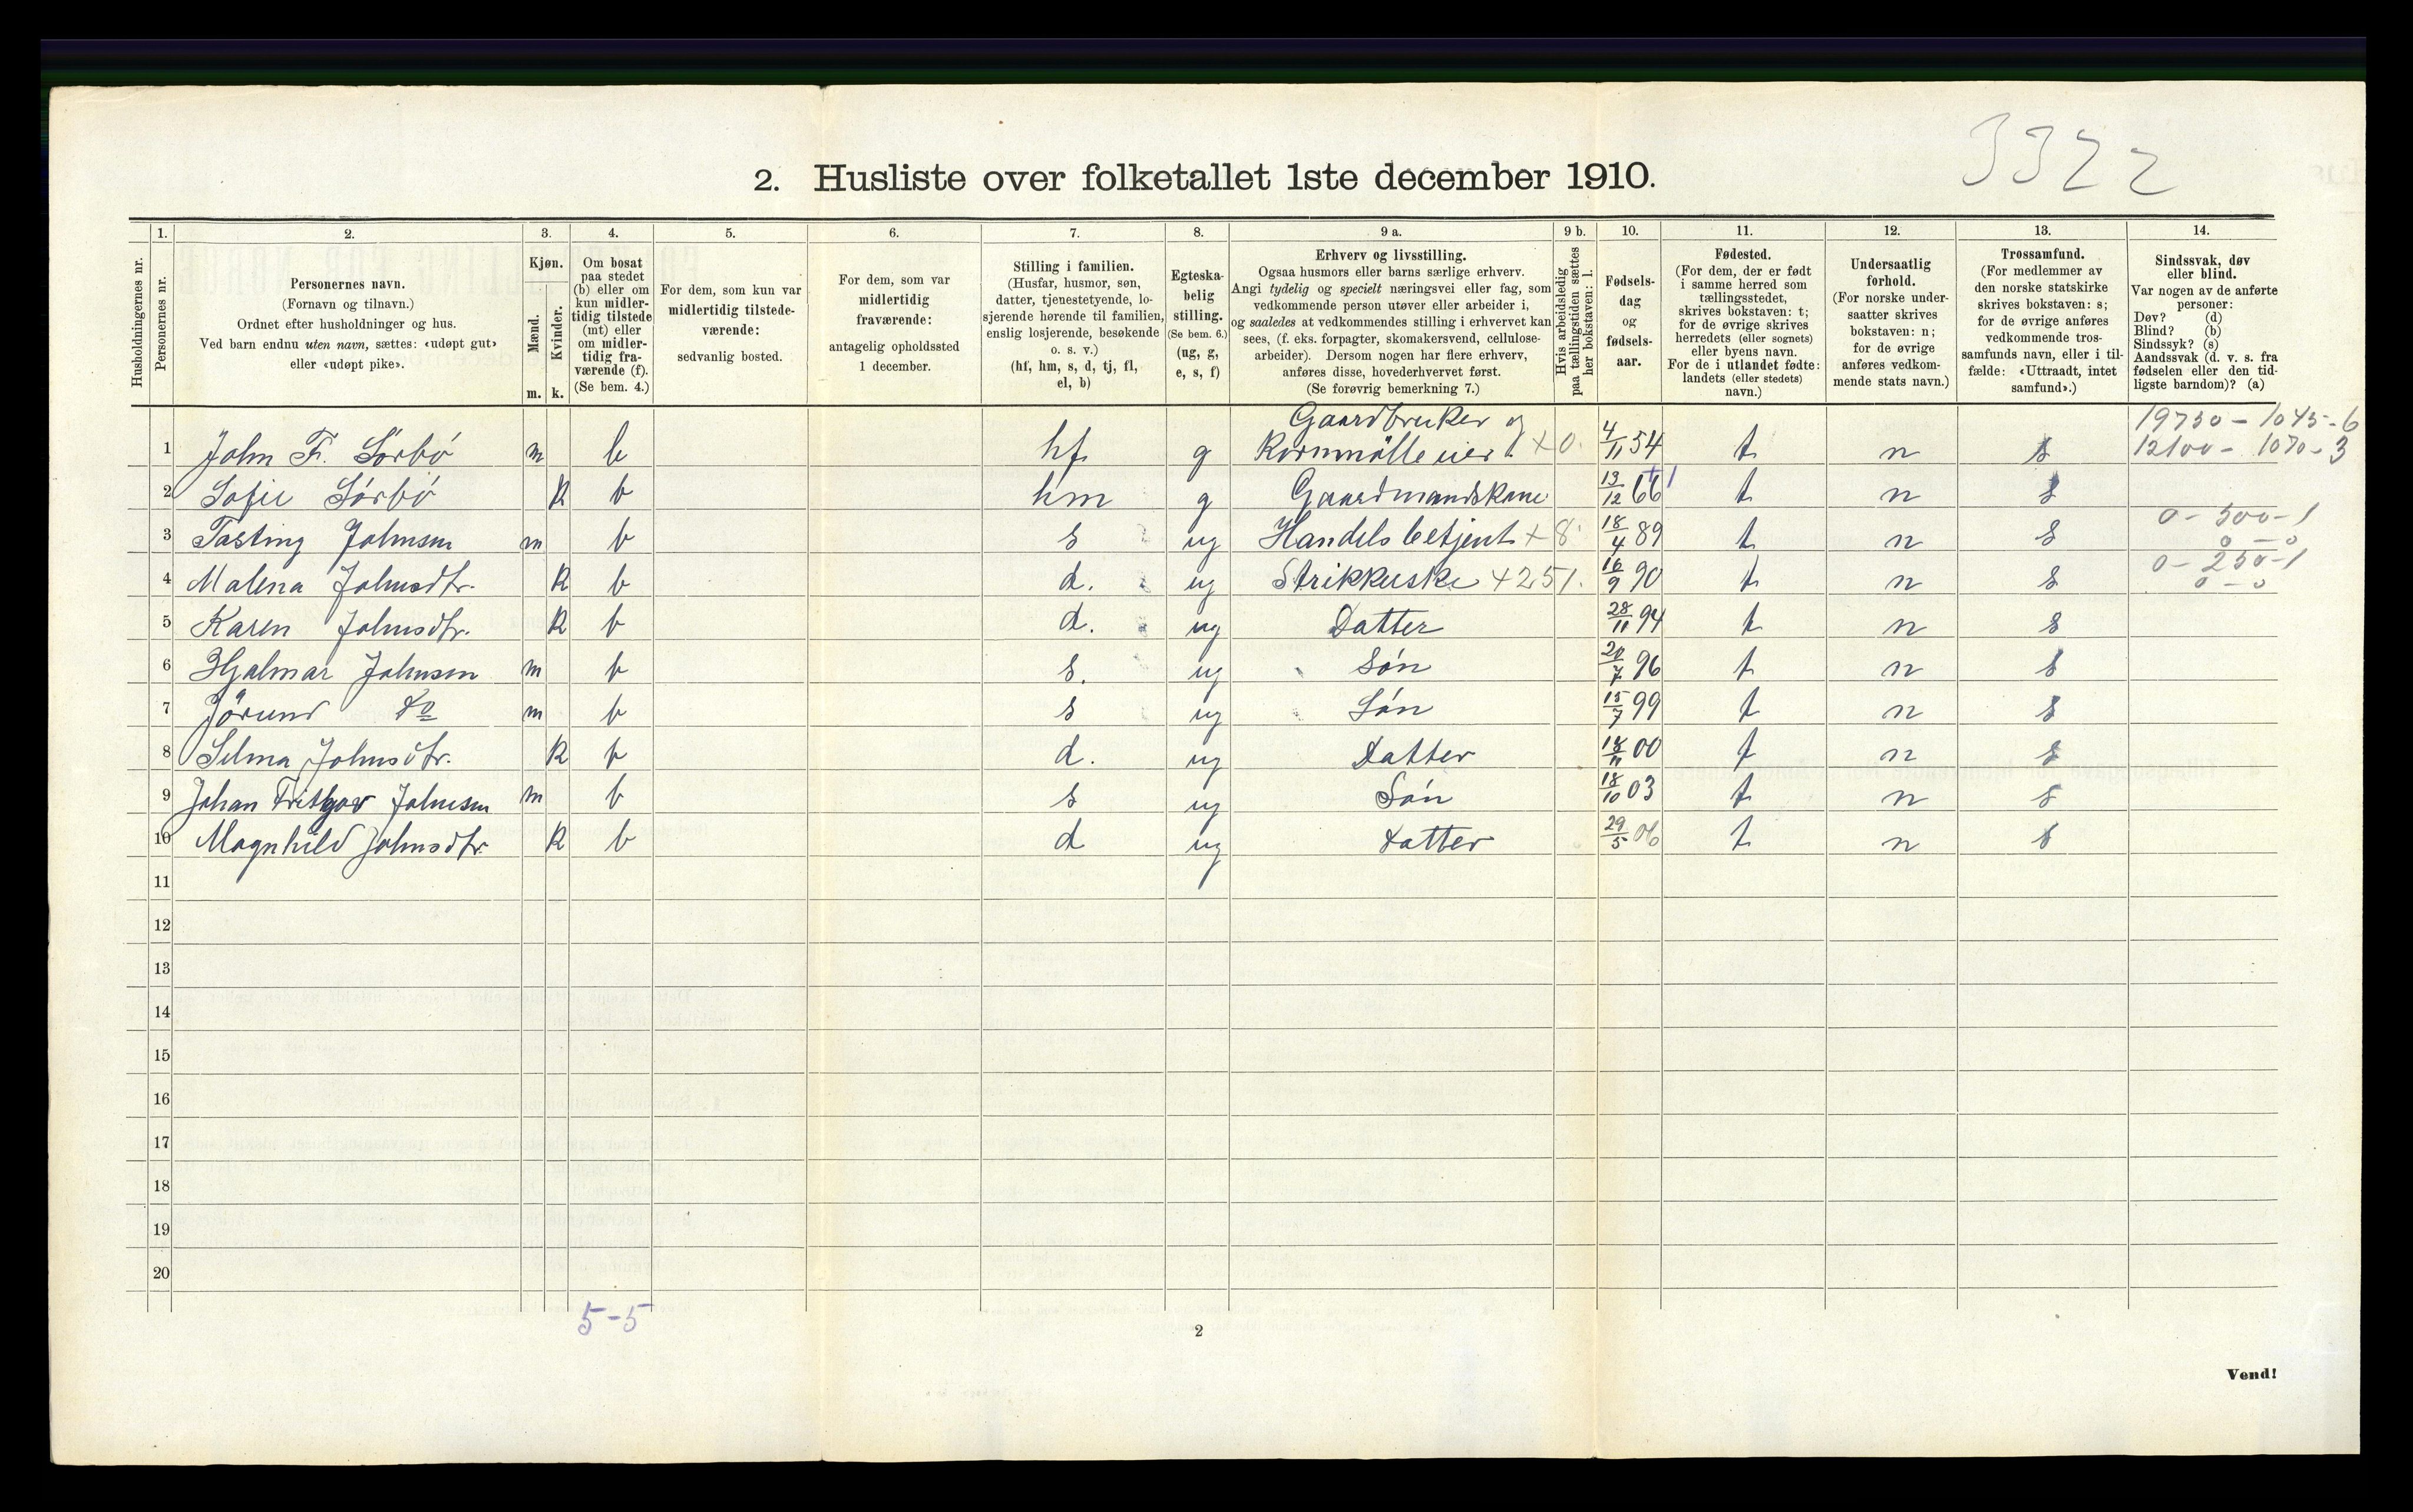 3322
2. Husliste over folketallet 1ste december 1910.
1. 2. 3. 4. 5. 6. 7. 8. 9 a. 9 b. 10. 11. 12. 13. 14.
Husholdningernes nr.
Personernes nr.
Personernes navn.
(Fornavn og tilnavn.)
Ordnet efter husholdninger og hus.
Ved barn endnu uten navn, sættes: «udøpt gut»
eller «udøpt pike».
Kjøn.
Mænd.
Kvinder.
m. k.
Om bosat
paa stedet
(b) eller om
kun midler-
tidig tilstede
(mt) eller
om midler-
tidig fra-
værende (f).
(Se bem. 4.)
For dem, som kun var
midlertidig tilstede-
værende:
sedvanlig bosted.
For dem, som var
midlertidig
fraværende:
antagelig opholdssted
1 december.
Stilling i familien.
(Husfar, husmor, søn,
datter, tjenestetyende, lo-
sjerende hørende til familien,
enslig losjerende, besøkende
o. s. v.)
(hf, hm, s, d, tj, fl,
el, b)
Egteska-
belig
stilling.
(Se bem. 6.)
(ug, g,
e, s, f)
Erhverv og livsstilling.
Ogsaa husmors eller barns særlige erhverv.
Angi tydelig og specielt næringsvei eller fag, som
vedkommende person utøver eller arbeider i,
og saaledes at vedkommendes stilling i erhvervet kan
sees, (f. eks. forpagter, skomakersvend, cellulose-
arbeider). Dersom nogen har flere erhverv,
anføres disse, hovederhvervet først.
(Se forøvrig bemerkning 7.)
Hvis arbeidsledig
paa tællingstiden sættes
her bokstaven: l.
Fødsels-
dag
og
fødsels-
aar.
Fødested.
(For dem, der er født
i samme herred som
tællingsstedet,
skrives bokstaven: t;
for de øvrige skrives
herredets (eller sognets)
eller byens navn.
For de i utlandet fødte:
landets (eller stedets)
navn.)
Undersaatlig
forhold.
(For norske under-
saatter skrives
bokstaven: n;
for de øvrige
anføres vedkom-
mende stats navn.)
Trossamfund.
(For medlemmer av
den norske statskirke
skrives bokstaven: s;
for de øvrige anføres
vedkommende tros-
samfunds navn, eller i til-
fælde: «Uttraadt, intet
samfund».)
Sindssvak, døv
eller blind.
Var nogen av de anførte
personer:
Døv? (d)
Blind? (b)
Sindssyk? (s)
Aandssvak (d. v. s. fra
fødselen eller den tid-
ligste barndom)? (a)
Gaardbruker og 19730-1045-6
1 John F. Sørbø m b hf g Kornmølleeier +0 4/11 54 t n s 12100-1070-3
2 Sofie Sørbø k b hm g Gaardmandskone 13/12 66 t n s
3 Tasting Johnsen m b s ug Handelsbetjent +8 18/4 89 t n s 0-500-1
0-0
4 Malena Johnsdtr. k b d. ug Strikkerske +251. 16/9 90 t n s 0-250-1
0-0
5 Karen Johnsdtr. k b d. ug Datter 28/11 94 t n s
6 Hjalmar Johnsen m b s. ug Søn 20/7 96 t n s
7 Jørund do m b s ug Søn 15/7 99 t n s
8 Selma Johnsdtr. k b d. ug Datter 18/11 00 t n s
9 Johan Frithjov Johnsen m b s ug Søn 18/10 03 t n s
10 Magnhild Johnsdtr. k b d ug Datter 29/5 06 t n s
11
12
13
14
15
16
17
18
19
20
5-5
2
Vend!